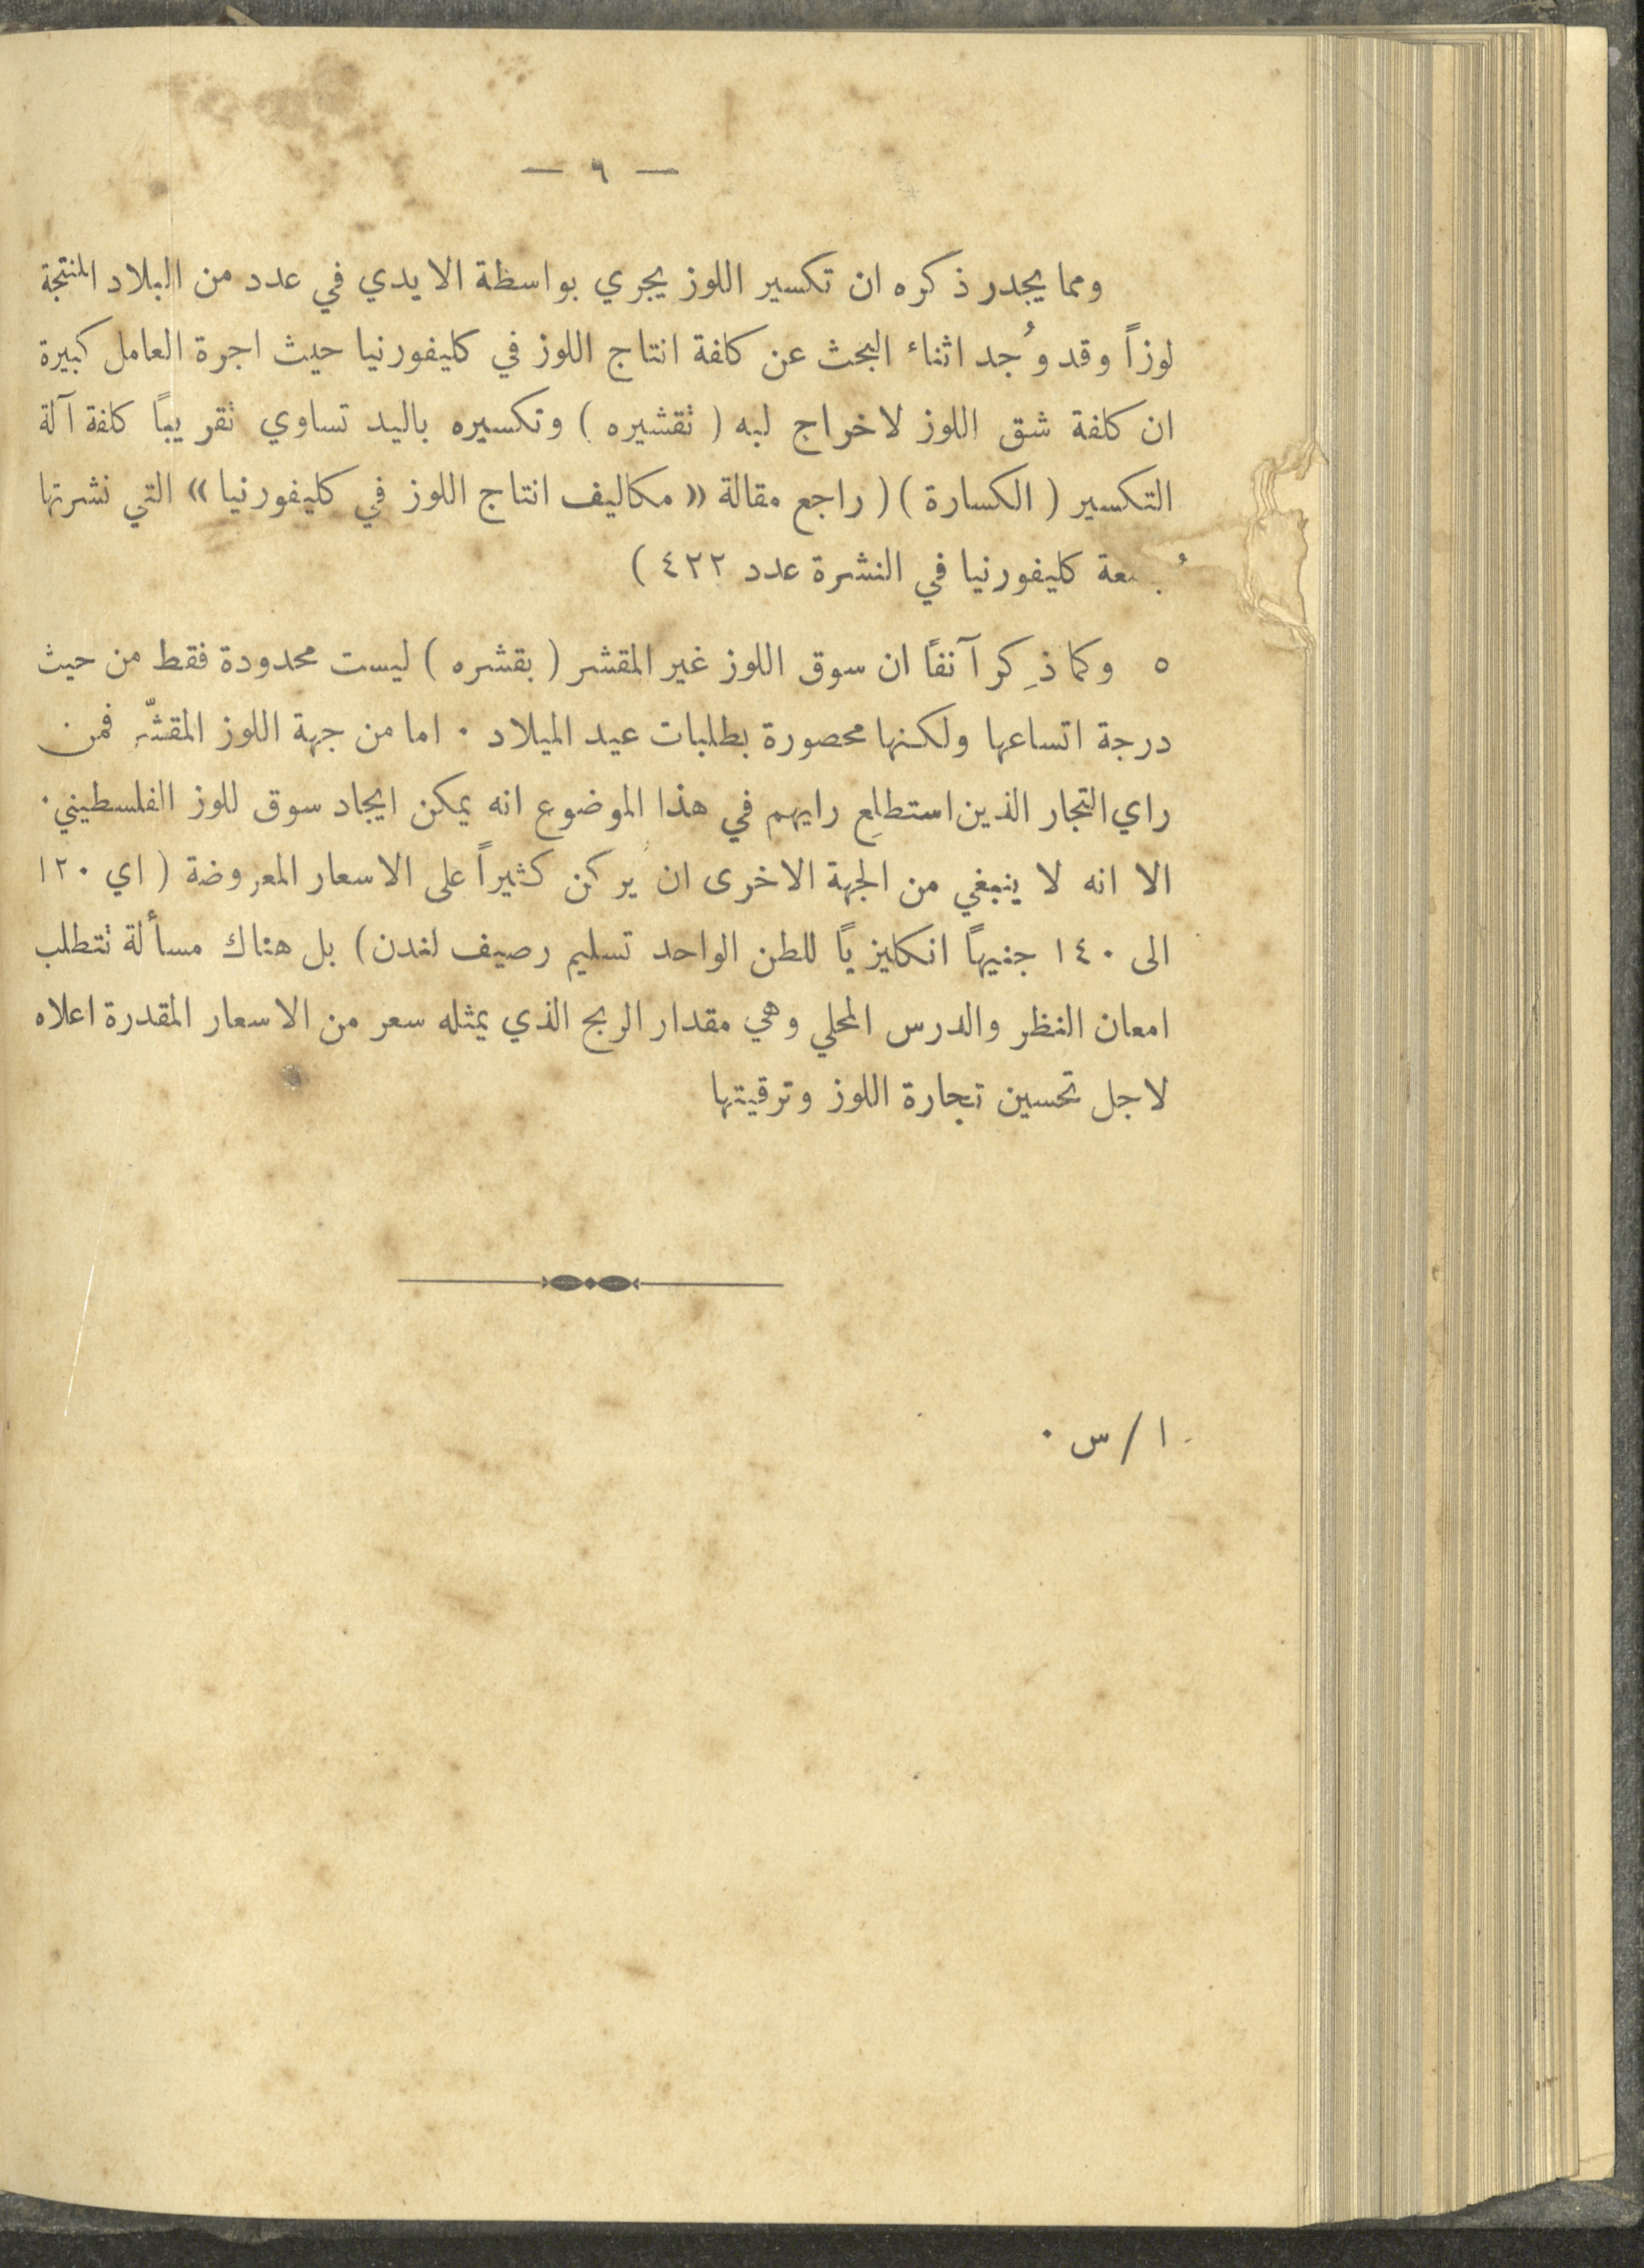 — ٩ —
ومما يجدر ذكره ان تكسير اللوز يجري بواسطة الايدي في عدد من البلاد المنتجة
لوزاً وقد وُجد اثناء البحث عن كلفة انتاج اللوز في كليفورنيا حيث اجرة العامل كبيرة
ان كلفة شق اللوز لاخراج لبه ( تقشيره ) وتكسيره باليد تساوي تقريباً كلفة آلة
التكسير ( الكسارة ) ( راجع مقالة « مكاليف انتاج اللوز في كليفورنيا » التي نشرتها
كليفورنيا في النشرة عدد ٤٢٢ )
٥ وكما ذِكر آنفاً ان سوق اللوز غير المقشر ( بقشره ) ليست محدودة فقط من حيث
درجة اتساعها ولكنها محصورة بطلبات عيد الميلاد ٠ اما من جهة اللوز المقشّر فمن
راي التجار الذين استطلِع رايهم في هذا الموضوع انه يمكن ايجاد سوق للوز الفلسطيني ٠
الا انه لا ينبغي من الجهة الاخرى ان يركن كثيراً على الاسعار المعروضة ( اي ١٢٠
الى ١٤٠ جنيهاً انكليزياً للطن الواحد تسليم رصيف لندن ) بل هناك مسألة تتطلب
امعان النظر والدرس المحلي وهي مقدار الربح الذي يمثله سعر من الاسعار المقدرة اعلاه
لاجل تحسين تجارة اللوز وترقيتها
ا / س ٠